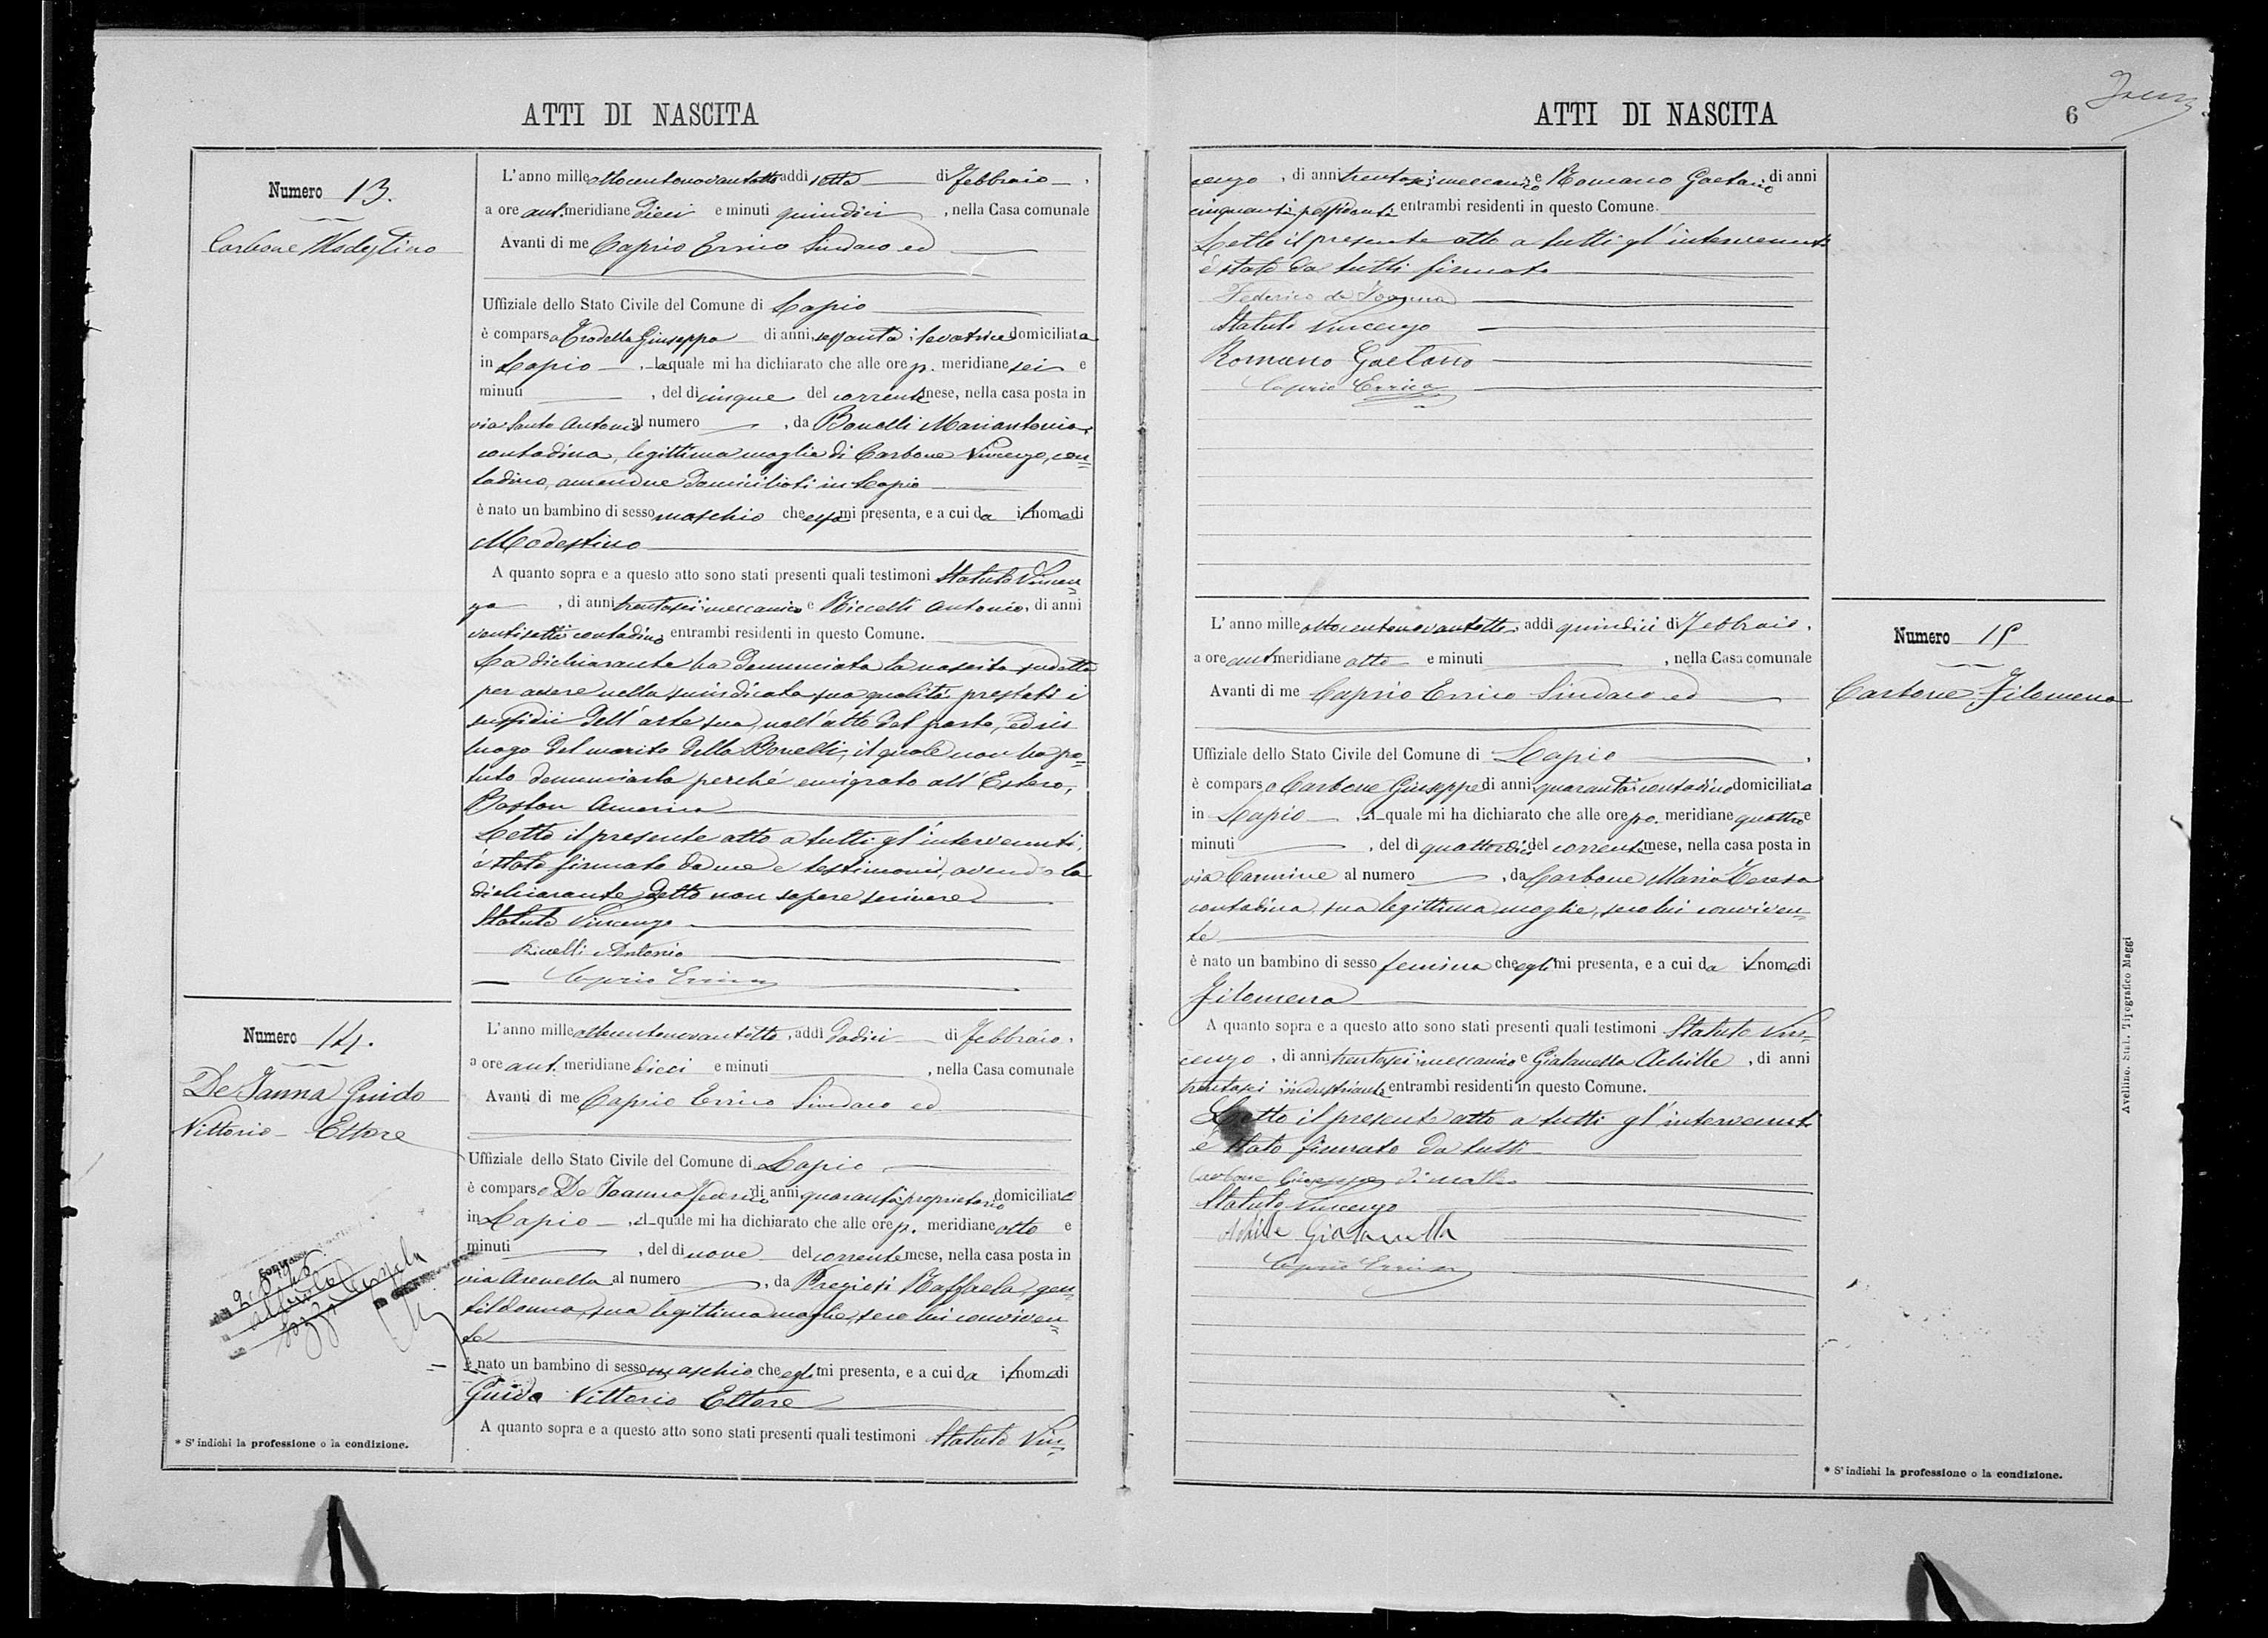 ATTI DI NASCITA
Numero 13.
Carbone Modestino
L'anno mille ottocentonovantotto addì sette di Febbraio,
a ore ant. meridiane dieci e minuti quindici, nella Casa comunale
Avanti di me Caprio Errico Sindaco ed
Uffiziale dello Stato Civile del Comune di Lapio
è comparsa Trodella Giuseppa di anni sessanta; levatrice domiciliata
in Lapio, la quale mi ha dichiarato che alle ore p. meridiane sei e
minuti , del dì cinque del corrente mese, nella casa posta in
via Santo Antonio al numero , da Bonelli Mariantonia,
contadina, legittima moglie di Carbone Vincenzo, con=
tadino, amendue domiciliati in Lapio
è nato un bambino di sesso maschio che essa mi presenta, e a cui da il nome di
Modestino
A quanto sopra e a questo atto sono stati presenti quali testimoni Statuto Vincen=
zo, di anni trentasei meccanico e Riccelli Antonio, di anni
ventisette contadino entrambi residenti in questo Comune.
La dichiarante ha denunciata la nascita sudetta
per avere nella suindicata sua qualità prestati i
sussidii dell'arte sua, nell'atto del parto, ed in
luogo del marito della Bonelli, il quale non ha po=
tuto denunciarla perché emigrato all'Estero,
Boston America
Letto il presente atto a tutti gl'intervenuti,
è stato firmato da me e testimoni, avendo la
dichiarante detto non sapere scrivere
Statuto Vincenzo
Riccelli Antonio
Caprio Errico
Numero 14.
De Ianna Guido
Vittorio Ettore
L'anno mille ottocentonovantotto, addì dodici di Febbraio,
a ore ant. meridiane dieci e minuti , nella Casa comunale
Avanti di me Caprio Errico Sindaco ed
Uffiziale dello Stato Civile del Comune di Lapio
è comparso De Ioanna Federico di anni quaranta proprietario domiciliato
in Lapio, il quale mi ha dichiarato che alle ore p. meridiane otto e
minuti , del dì nove del corrente mese, nella casa posta in
via Arenella al numero , da Preziosi Raffaela, gen=
tildonna, sua legittima moglie, seco lui conviven=
te
è nato un bambino di sesso maschio che egli mi presenta, e a cui da il nome di
Guido Vittorio Ettore
A quanto sopra e a questo atto sono stati presenti quali testimoni Statuto Vin=
* S'indichi la professione o la condizione.
ATTI DI NASCITA
6
cenzo, di anni trentasei meccanico e Romano Gaetano di anni
cinquanta possidente entrambi residenti in questo Comune.
Letto il presente atto a tutti gl'intervenuti
è stato da tutti firmato
Federico de Ioanna
Statuto Vincenzo
Romano Gaetano
Caprio Errico
Numero 15
Carbone Filomena
L'anno mille ottocentonovantotto, addì quindici di Febbraio,
a ore ant meridiane otto e minuti , nella Casa comunale
Avanti di me Caprio Errico Sindaco ed
Uffiziale dello Stato Civile del Comune di Lapio,
è comparso Carbone Giuseppe di anni quaranta contadino domiciliato
in Lapio, il quale mi ha dichiarato che alle ore po. meridiane quattro e
minuti , del dì quattordici del corrente mese, nella casa posta in
via Carmine al numero , da Carbone Maria Teresa
contadina, sua legittima moglie, seco lui conviven=
te
è nato un bambino di sesso femina che egli mi presenta, e a cui da il nome di
Filomena
A quanto sopra e a questo atto sono stati presenti quali testimoni Statuto Vin=
cenzo, di anni trentasei meccanico e Gialanella Achille, di anni
trentasei industriante entrambi residenti in questo Comune.
Letto il presente atto a tutti gl'intervenuti
è stato firmato da tutti
Carbone Giuseppe di
Statuto Vincenzo
Achille Gialanella
Caprio Errico
* S'indichi la professione o la condizione.
Avellino. Stab. Tipografico Maggi